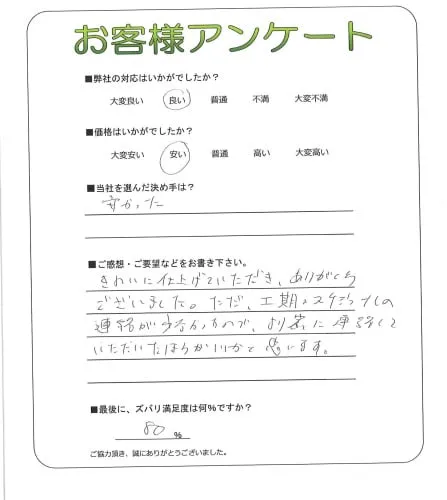 お客様アンケート
■弊社の対応はいかがでしたか？
大変良い 良い 普通 不満 大変不満
■価格はいかがでしたか？
大変安い 安い 普通 高い 大変高い
■当社を選んだ決め手は？
安かった
■ご感想・ご要望などをお書き下さい。
きれいに仕上げていただき、ありがとう
ございました。ただ、工期、スケジュールの
連絡が少なかったので、より密に連絡して
いただいたほうがいいかと思います。
■最後に、ズバリ満足度は何％ですか？
80 %
ご協力頂き、誠にありがとうございました。